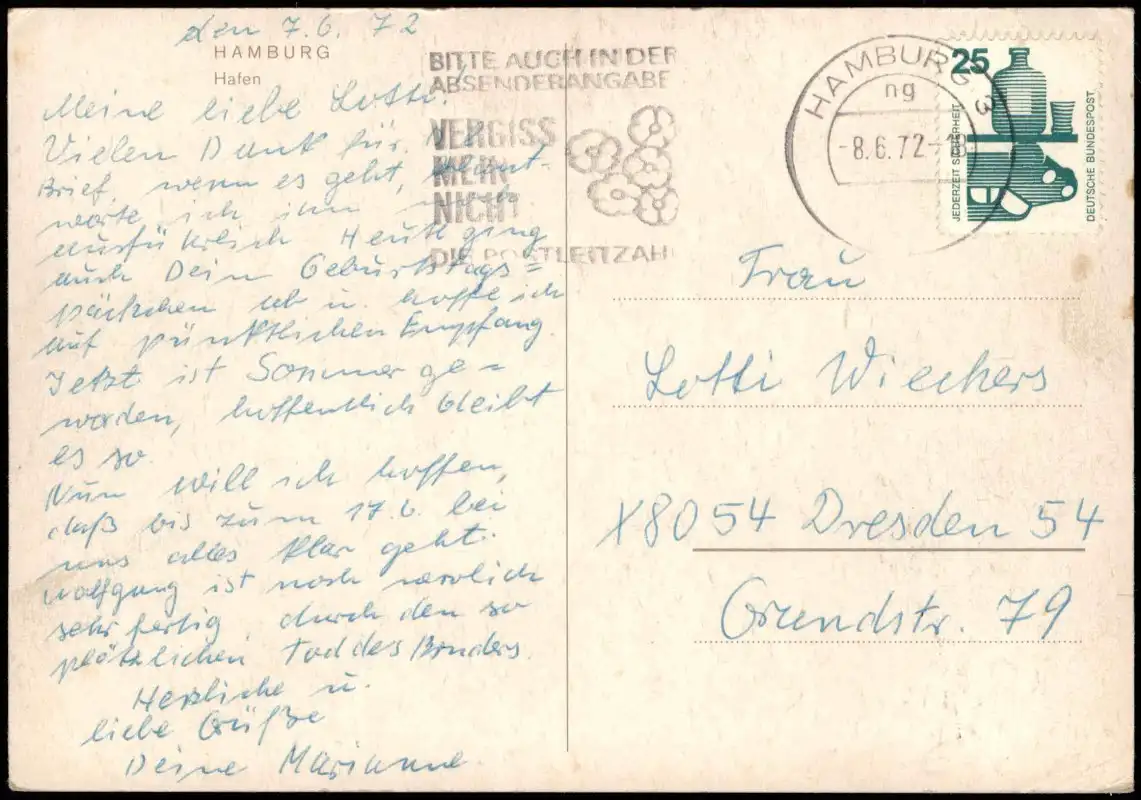 den 7.6.72
HAMBURG
Hafen
Meine liebe Lotti!
Vielen Dank für
Brief, wenn es geht,
worte ich ihn noch
ausführlich Heute ging
auch Dein Geburtstags=
päckchen ab u. hoffe ich
auf pünktlichen Empfang.
Jetzt ist Sommer ge-
worden, hoffentlich bleibt
es so.
Nun will ich hoffen,
daß bis zum 17.6. bei
uns alles klar geht.
Wolfgang ist noch nervlich
sehr fertig, durch den so
plötzlichen Tod des Bruders.
Herzliche u.
liebe Grüße
Deine Marianne
BITTE AUCH IN DER
ABSENDERANGABE
VERGISS
MEIN
NICHT
DIE POSTLEITZAHL
HAMBURG 3
ng
-8.6.72-18
25
JEDERZEIT SICHERHEIT
DEUTSCHE BUNDESPOST
Frau
Lotti Wiechers
X8054 Dresden 54
Grundstr. 79